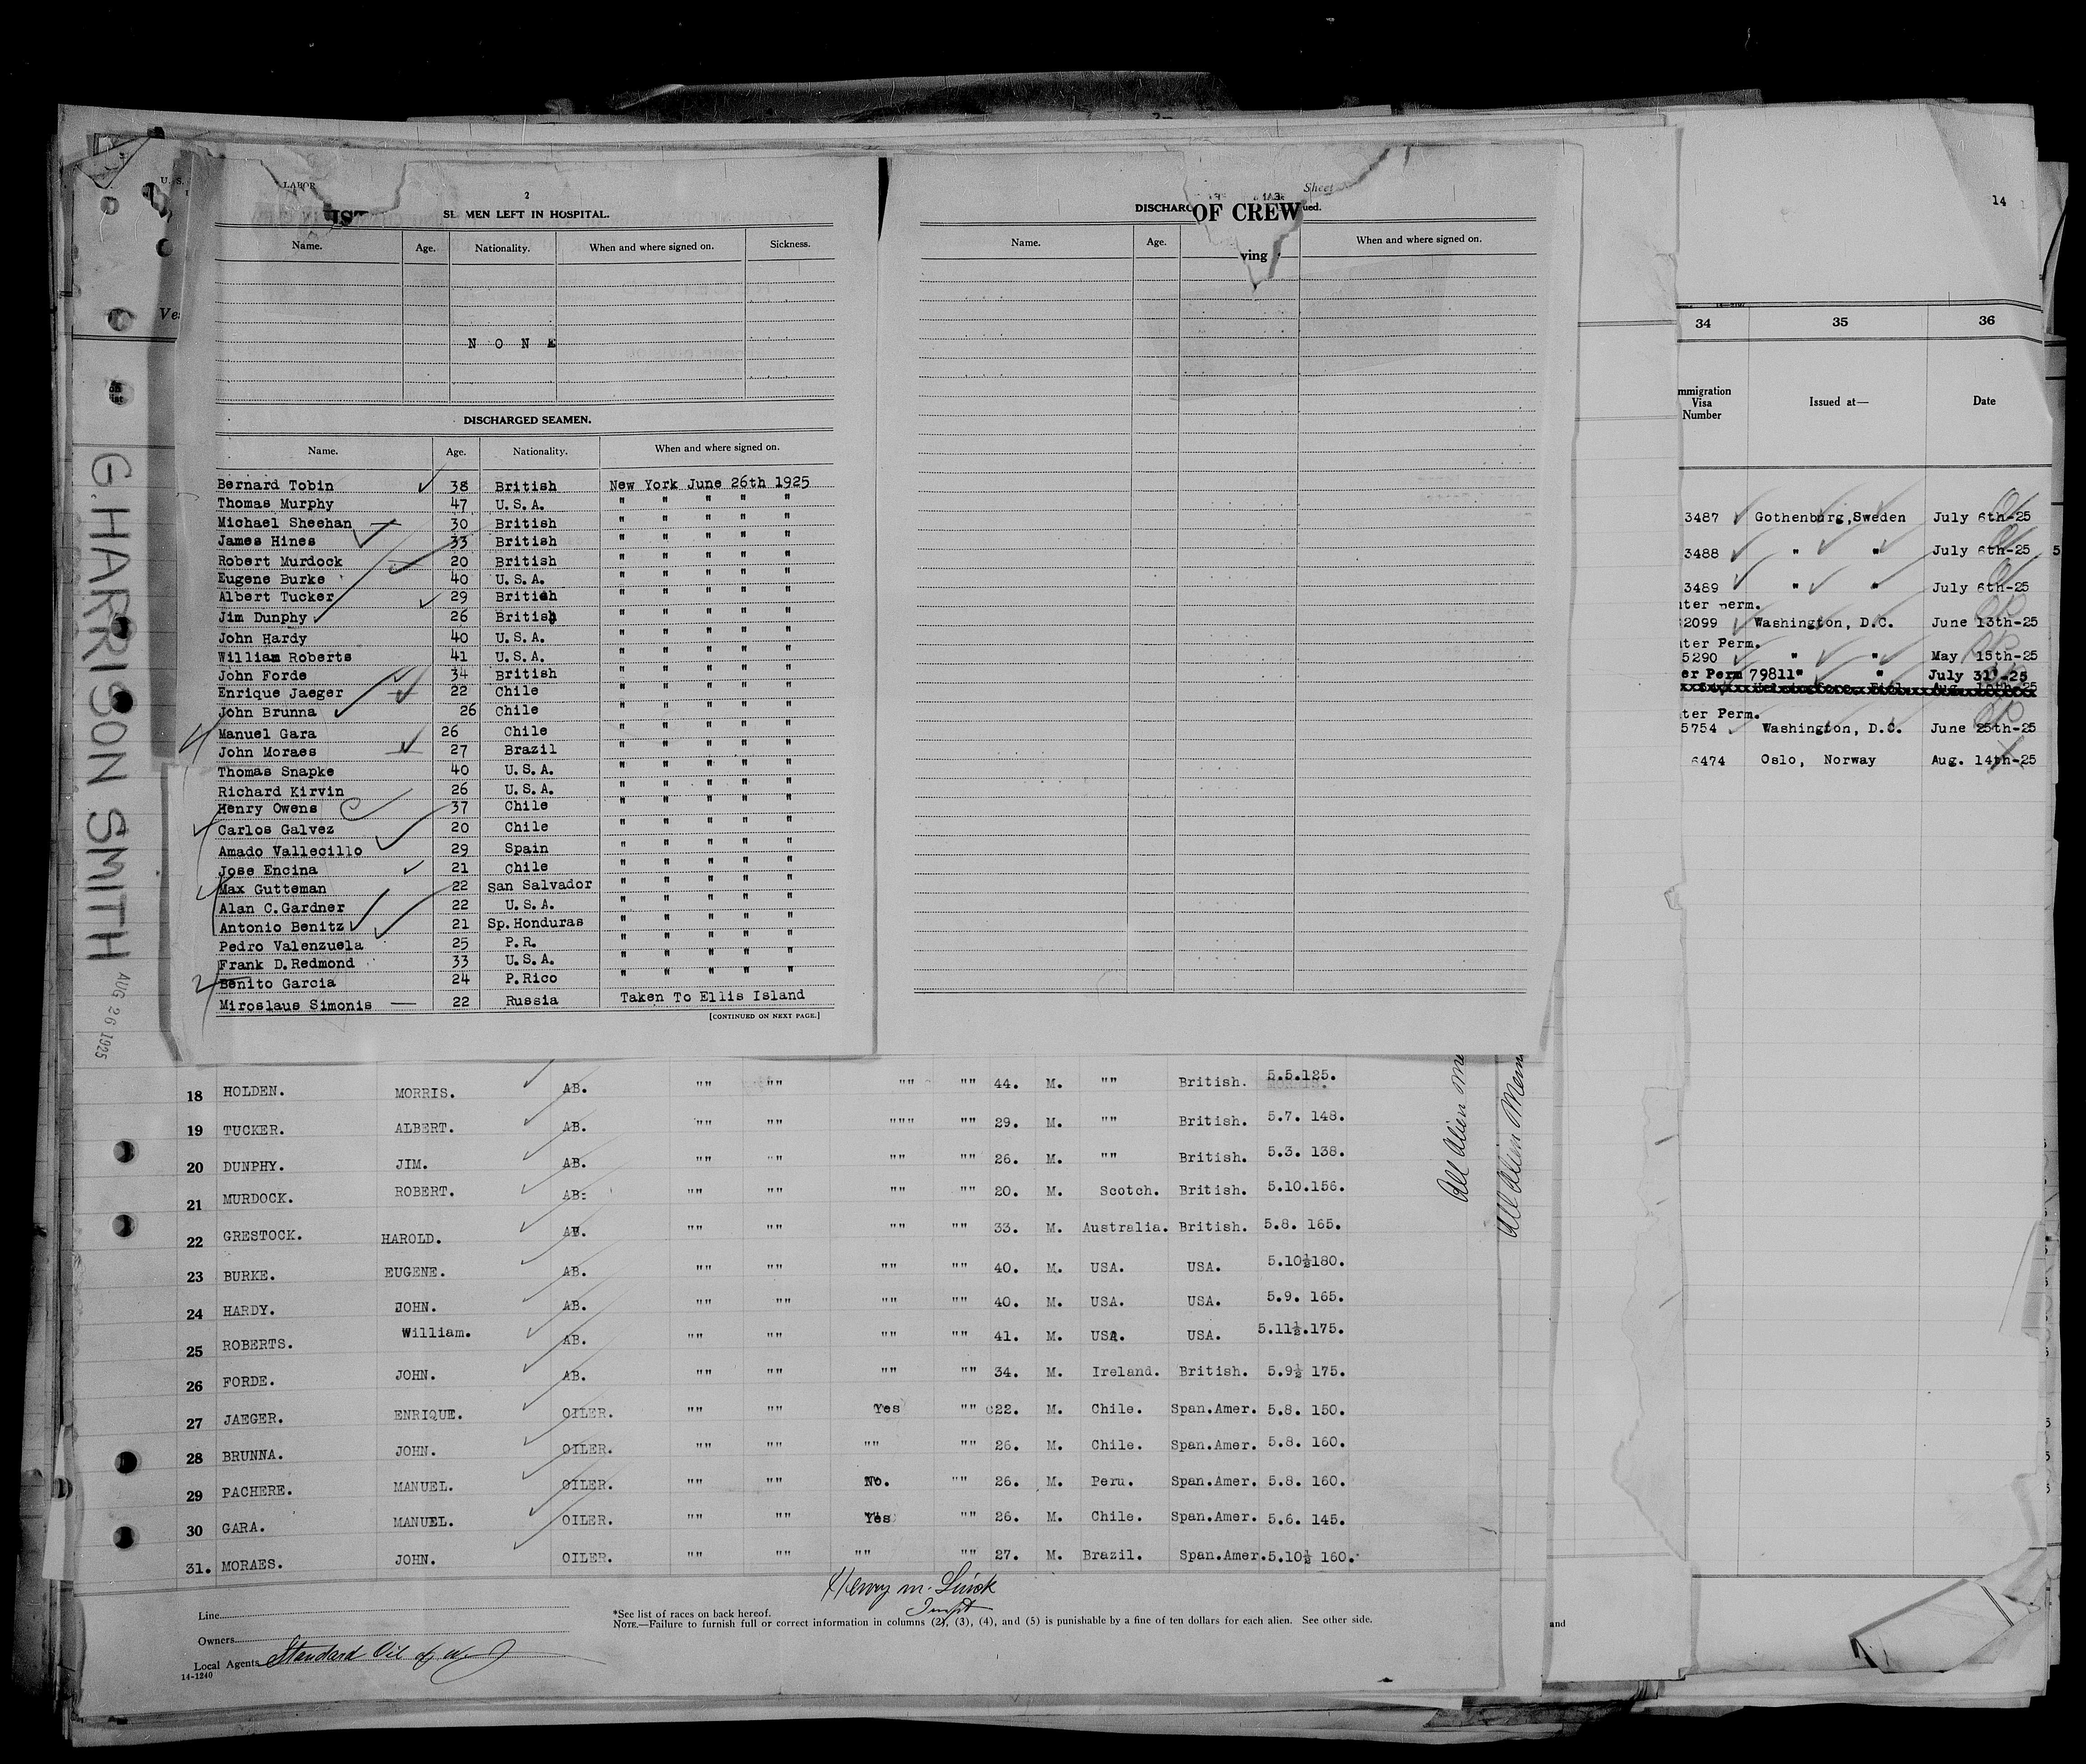 G. HARRISON SMITH
AUG 26 1925
U. S.
LABOR
2
MEN LEFT IN HOSPITAL.
Name. Age. Nationality. When and where signed on. Sickness.
N O N E
DISCHARGED SEAMEN.
Name. Age. Nationality. When and where signed on.
Bernard Tobin 38 British New York June 26th 1925
Thomas Murphy 47 U.S.A. " " " " "
Michael Sheehan 30 British " " " " "
James Hines 33 British " " " " "
Robert Murdock 20 British " " " " "
Eugene Burke 40 U.S.A. " " " " "
Albert Tucker 29 British " " " " "
Jim Dunphy 26 British " " " " "
John Hardy 40 U.S.A. " " " " "
William Roberts 41 U.S.A. " " " " "
John Forde 34 British " " " " "
Enrique Jaeger 22 Chile " " " " "
John Brunna 26 Chile " " " " "
Manuel Gara 26 Chile " " " " "
John Moraes 27 Brazil " " " " "
Thomas Snapke 40 U.S.A. " " " " "
Richard Kirvin 26 U.S.A. " " " " "
Henry Owens 37 Chile " " " " "
Carlos Galvez 20 Chile " " " " "
Amado Vallecillo 29 Spain " " " " "
Jose Encina 21 Chile " " " " "
Max Gutteman 22 San Salvador " " " " "
Alan C.Gardner 22 U.S.A. " " " " "
Antonio Benitz 21 Sp.Honduras " " " " "
Pedro Valenzuela 25 P.R. " " " " "
Frank D.Redmond 33 U.S.A. " " " " "
Benito Garcia 24 P.Rico " " " " "
Miroslaus Simonis 22 Russia Taken To Ellis Island
[CONTINUED ON NEXT PAGE.]
Sheet
OF CREW
ving
Name. Age. When and where signed on.
14
34 35 36
Visa Number Issued at— Date
3487 Gothenburg,Sweden July 6th-25
3488 " " July 6th-25
3489 " " July 6th-25
2099 Washington, D.C. June 13th-25
Perm.
5290 " " May 15th-25
Perm 79811" " July 31'-25
Perm.
5754 Washington, D.C. June 25th-25
6474 Oslo, Norway Aug. 14th-25
18 HOLDEN. MORRIS. AB. "" "" "" "" 44. M. "" British. 5.5.125.
19 TUCKER. ALBERT. AB. "" "" """ "" 29. M. "" British. 5.7. 148.
20 DUNPHY. JIM. AB. "" "" "" "" 26. M. "" British. 5.3. 138.
21 MURDOCK. ROBERT. AB: "" "" "" "" 20. M. Scotch. British. 5.10.156.
22 GRESTOCK. HAROLD. AB. "" "" "" "" 33. M. Australia. British. 5.8. 165.
23 BURKE. EUGENE. AB. "" "" "" "" 40. M. USA. USA. 5.10½180.
24 HARDY. JOHN. AB. "" "" "" "" 40. M. USA. USA. 5.9. 165.
25 ROBERTS. William. AB. "" "" "" "" 41. M. USA. USA. 5.11½.175.
26 FORDE. JOHN. AB. "" "" "" "" 34. M. Ireland. British. 5.9½ 175.
27 JAEGER. ENRIQUE. OILER. "" "" Yes "" 22. M. Chile. Span.Amer. 5.8. 150.
28 BRUNNA. JOHN. OILER. "" "" "" "" 26. M. Chile. Span.Amer. 5.8. 160.
29 PACHERE. MANUEL. OILER. "" "" No. "" 26. M. Peru. Span.Amer. 5.8. 160.
30 GARA. MANUEL. OILER. "" "" Yes "" 26. M. Chile. Span.Amer. 5.6. 145.
31. MORAES. JOHN. OILER. "" "" "" "" 27. M. Brazil. Span.Amer.5.10½ 160.
All Alien
All Alien
Henry M.
Line
Owners
Local Agents Standard Oil of
14-1240
*See list of races on back hereof.
NOTE.—Failure to furnish full or correct information in columns (2), (3), (4), and (5) is punishable by a fine of ten dollars for each alien. See other side.
and